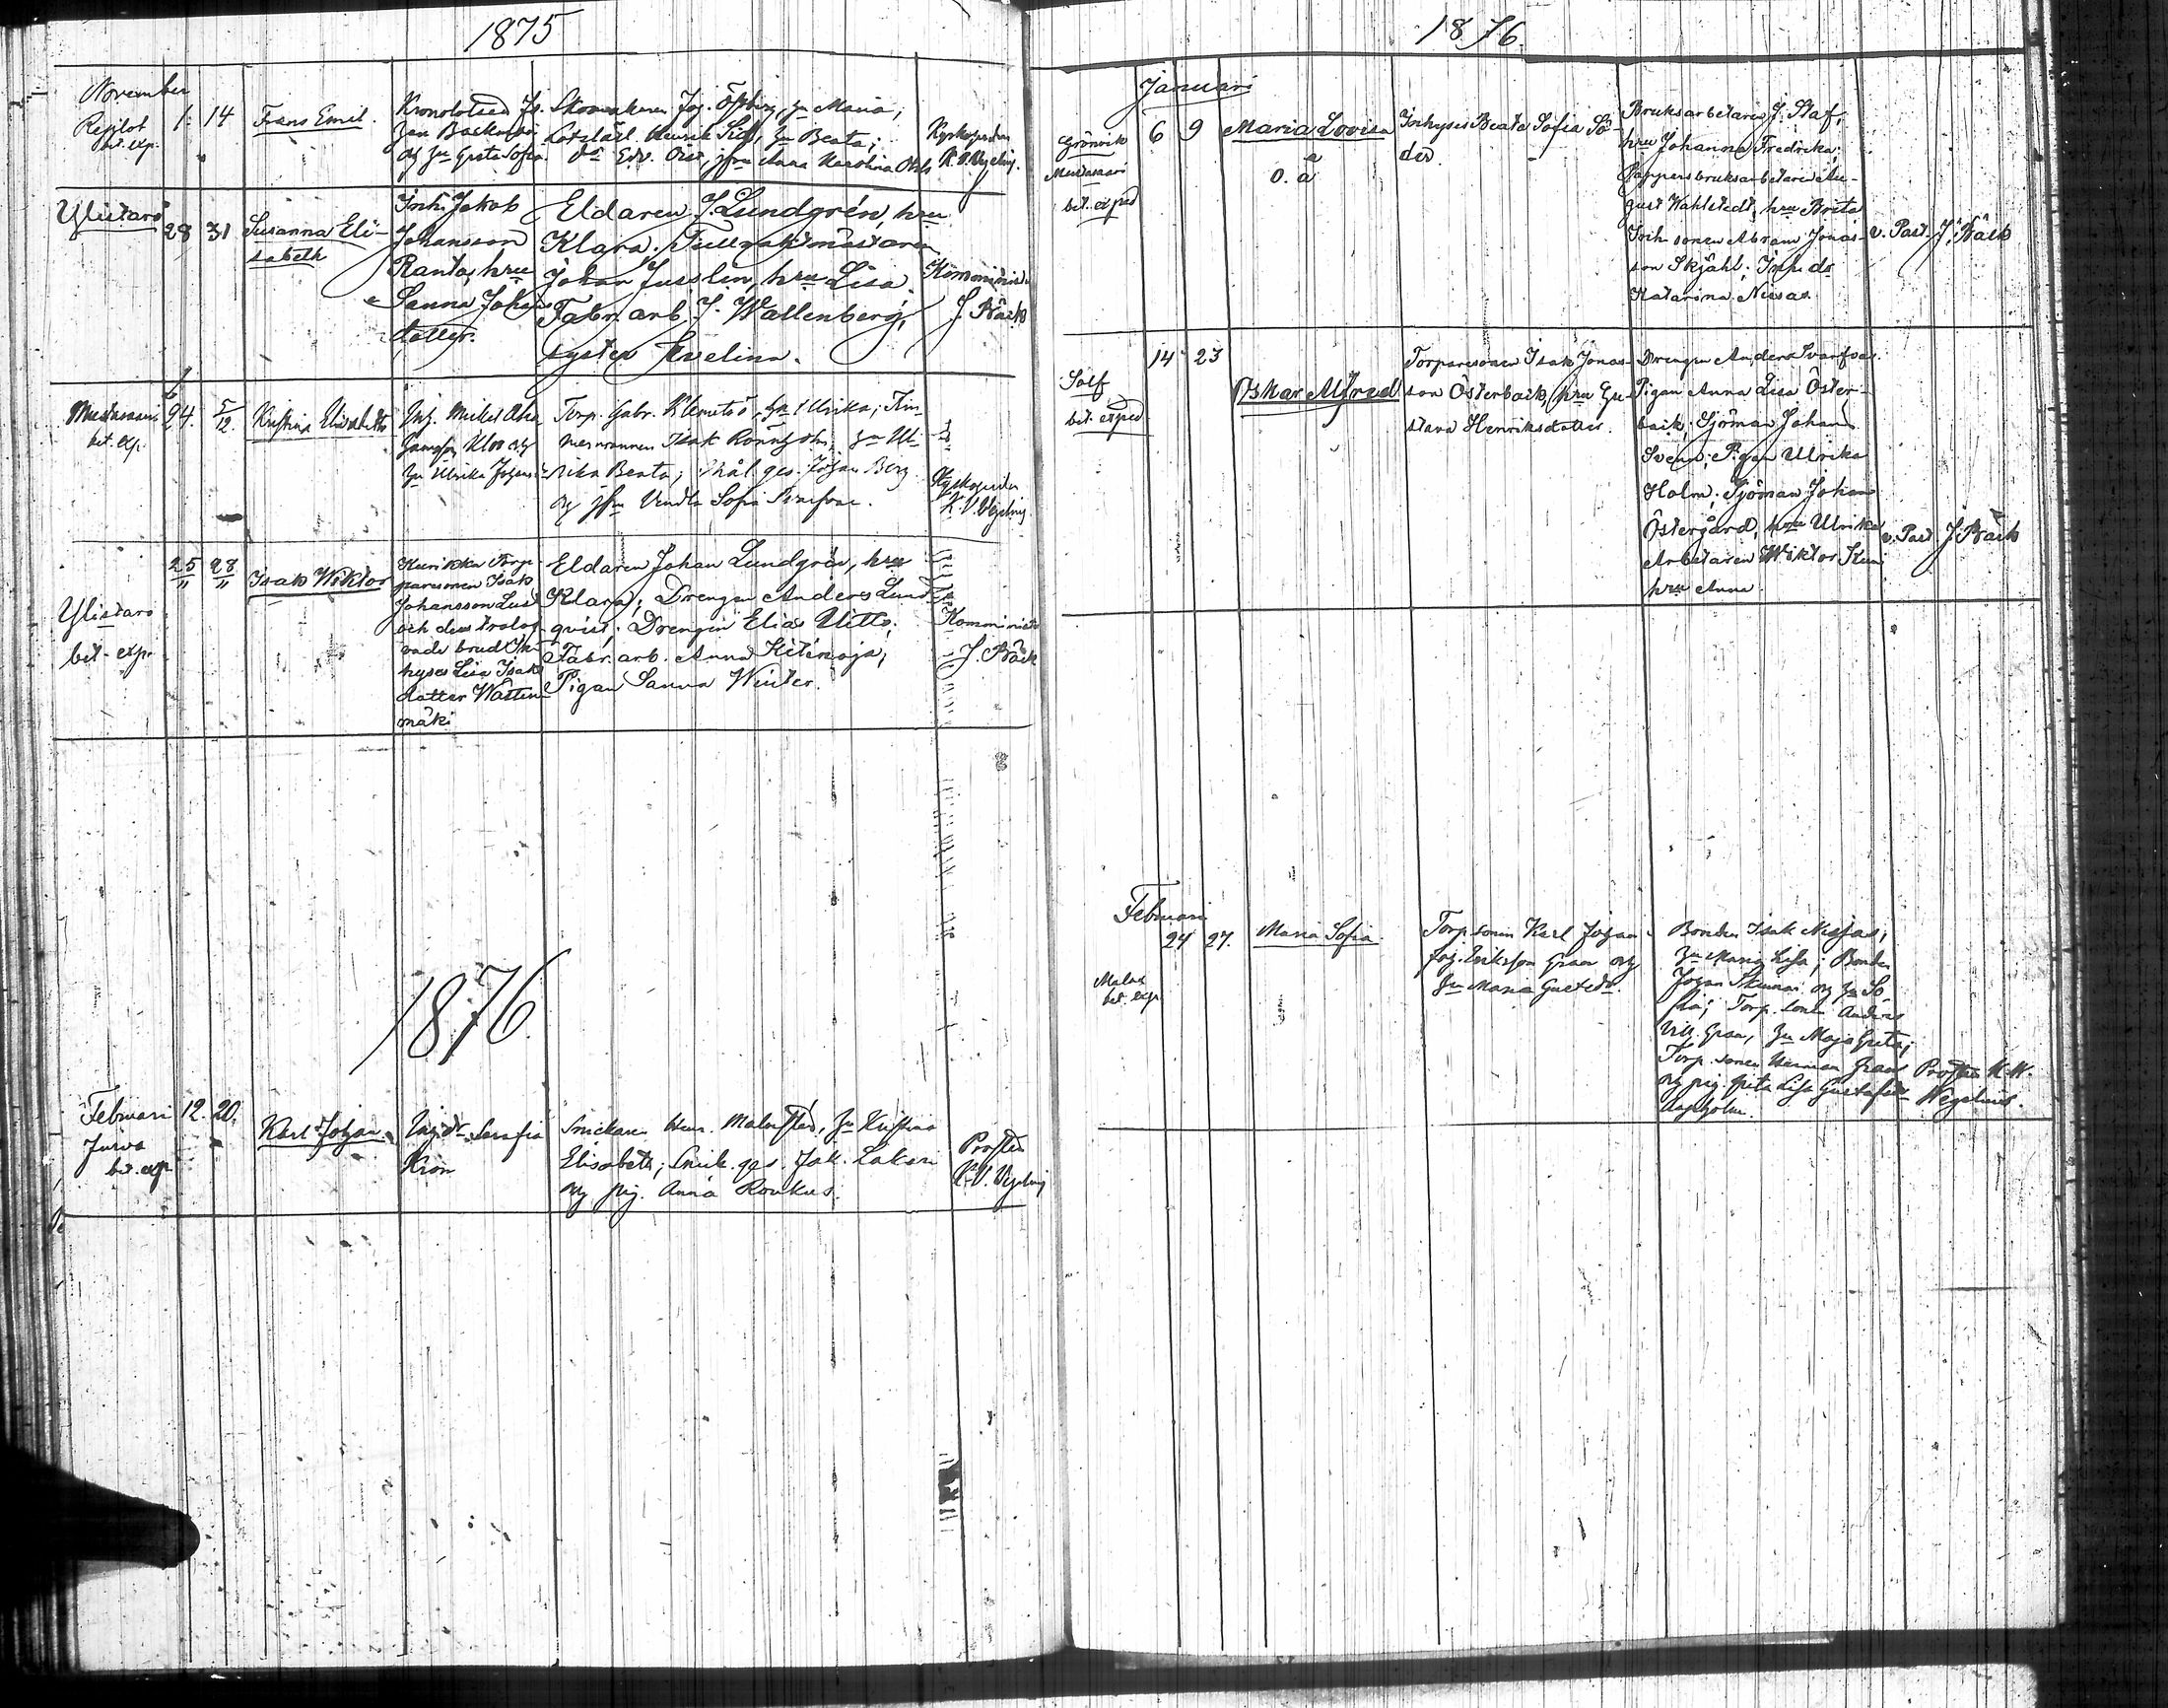 1875
November
Replot
bet. exp.
1. 14
Frans Emil.
Kronolotsen Js.
och hu Greta Sofia.
Skomakaren Joh. Östberg, hu Maria,
Lotslärl. Henrik Sid, hu Beata;
do Edv. Öist, jfru Anna Karolina
Kyrkoherden
K. V. Wegelius.
Ylistaro
28 31
Susanna Eli-
sabeth
Inh. Jakob
Johansson
Ranta, hru
Sanna Johans
dotter.
Eldaren J. Lundgrén, hru
Klara. Tullvaktmästaren
Johan Jusslin, hru Lisa.
Fabr. arb. J. Wallenberg,
syster Evelina.
Kommin
J. Bäck
Mustasaari
bet. exp.
24. 5/12.
Kristina Elisabeth
Inh. Mickel
hu Ulrika Johans
Torp. Gabr. Klemets, hu Ulrika; Tim-
mermannen Isak Rönnholm, hu Ul-
rika Beata; Mål. ges. Johan Berg
och jfru Vendla Sofia
Kyrkoherden
K. V. Wegelius
Ylistaro
bet. exp.
25/11 28/11
Isak Wiktor
Torpa-
resonen Isak
Johansson
och dess trolof-
vade brud In-
hyses Lisa Isaks
dotter
mäki
Eldaren Johan Lundgrén, hru
Klara; Drengen Anders Lund-
qvist; Drengen Elias Uitto;
Fabr. arb. Anna Kitinoja;
Pigan Sanna Winter.
Komminist
J. Bäck
1876
Februari
Jurva
bet. exp.
12. 20.
Karl Johan.
Inh. dr. Serafia
Krön
Snickaren Henr. Malmsted, hu Kristina
Elisabeth; Snick. ges. Jak. Lakari
och pig. Anna Roukus.
Prosten
K. V. Wegelius
1876.
Januari
Grönvik
Mustasaari
bet. exped
6 9
Maria Lovisa
o. ä
Inhyses Beata Sofia Sö-
der.
Bruksarbetaren J. Staf,
hru Johanna Fredrika;
Pappersbruksarbetaren Au-
gust Wahlstedt, hru Brita
Inh. sonen Abram Jonas-
son Skjähl; Inh. ds
Katarina Nissas.
v. Past. J. Bäck
Solf
bet. exped
14 23
Oskar Alfred
Torparesonen Isak Jonas-
son Österback, hru Gu-
stava Henriksdotter.
Drengen Anders Svarfvar
Pigan Anna Lisa Öster-
back; Sjöman Johan
Svenn; Pigan Ulrika
Holm; Sjöman Johan
Östergård, hru Ulrika
Arbetaren Wiktor
hru Anna.
v. Past J. Bäck
Februari
Malax
bet. exp.
24 27.
Maria Sofia.
Torp. sonen Karl Johan
Joh. Eriksson Gran och
hu Maria Gustafsdr.
Bonden Isak Nissas,
hu Maria Lisa; Bonden
Johan Skinnar och hu So-
fia; Torp. sonen Anders
Vill. Gran, hu Maja Greta;
Torp. sonen Herman Gran
och pig. Greta Lisa Gustafsdr.
Prosten K. W.
Wegelius.